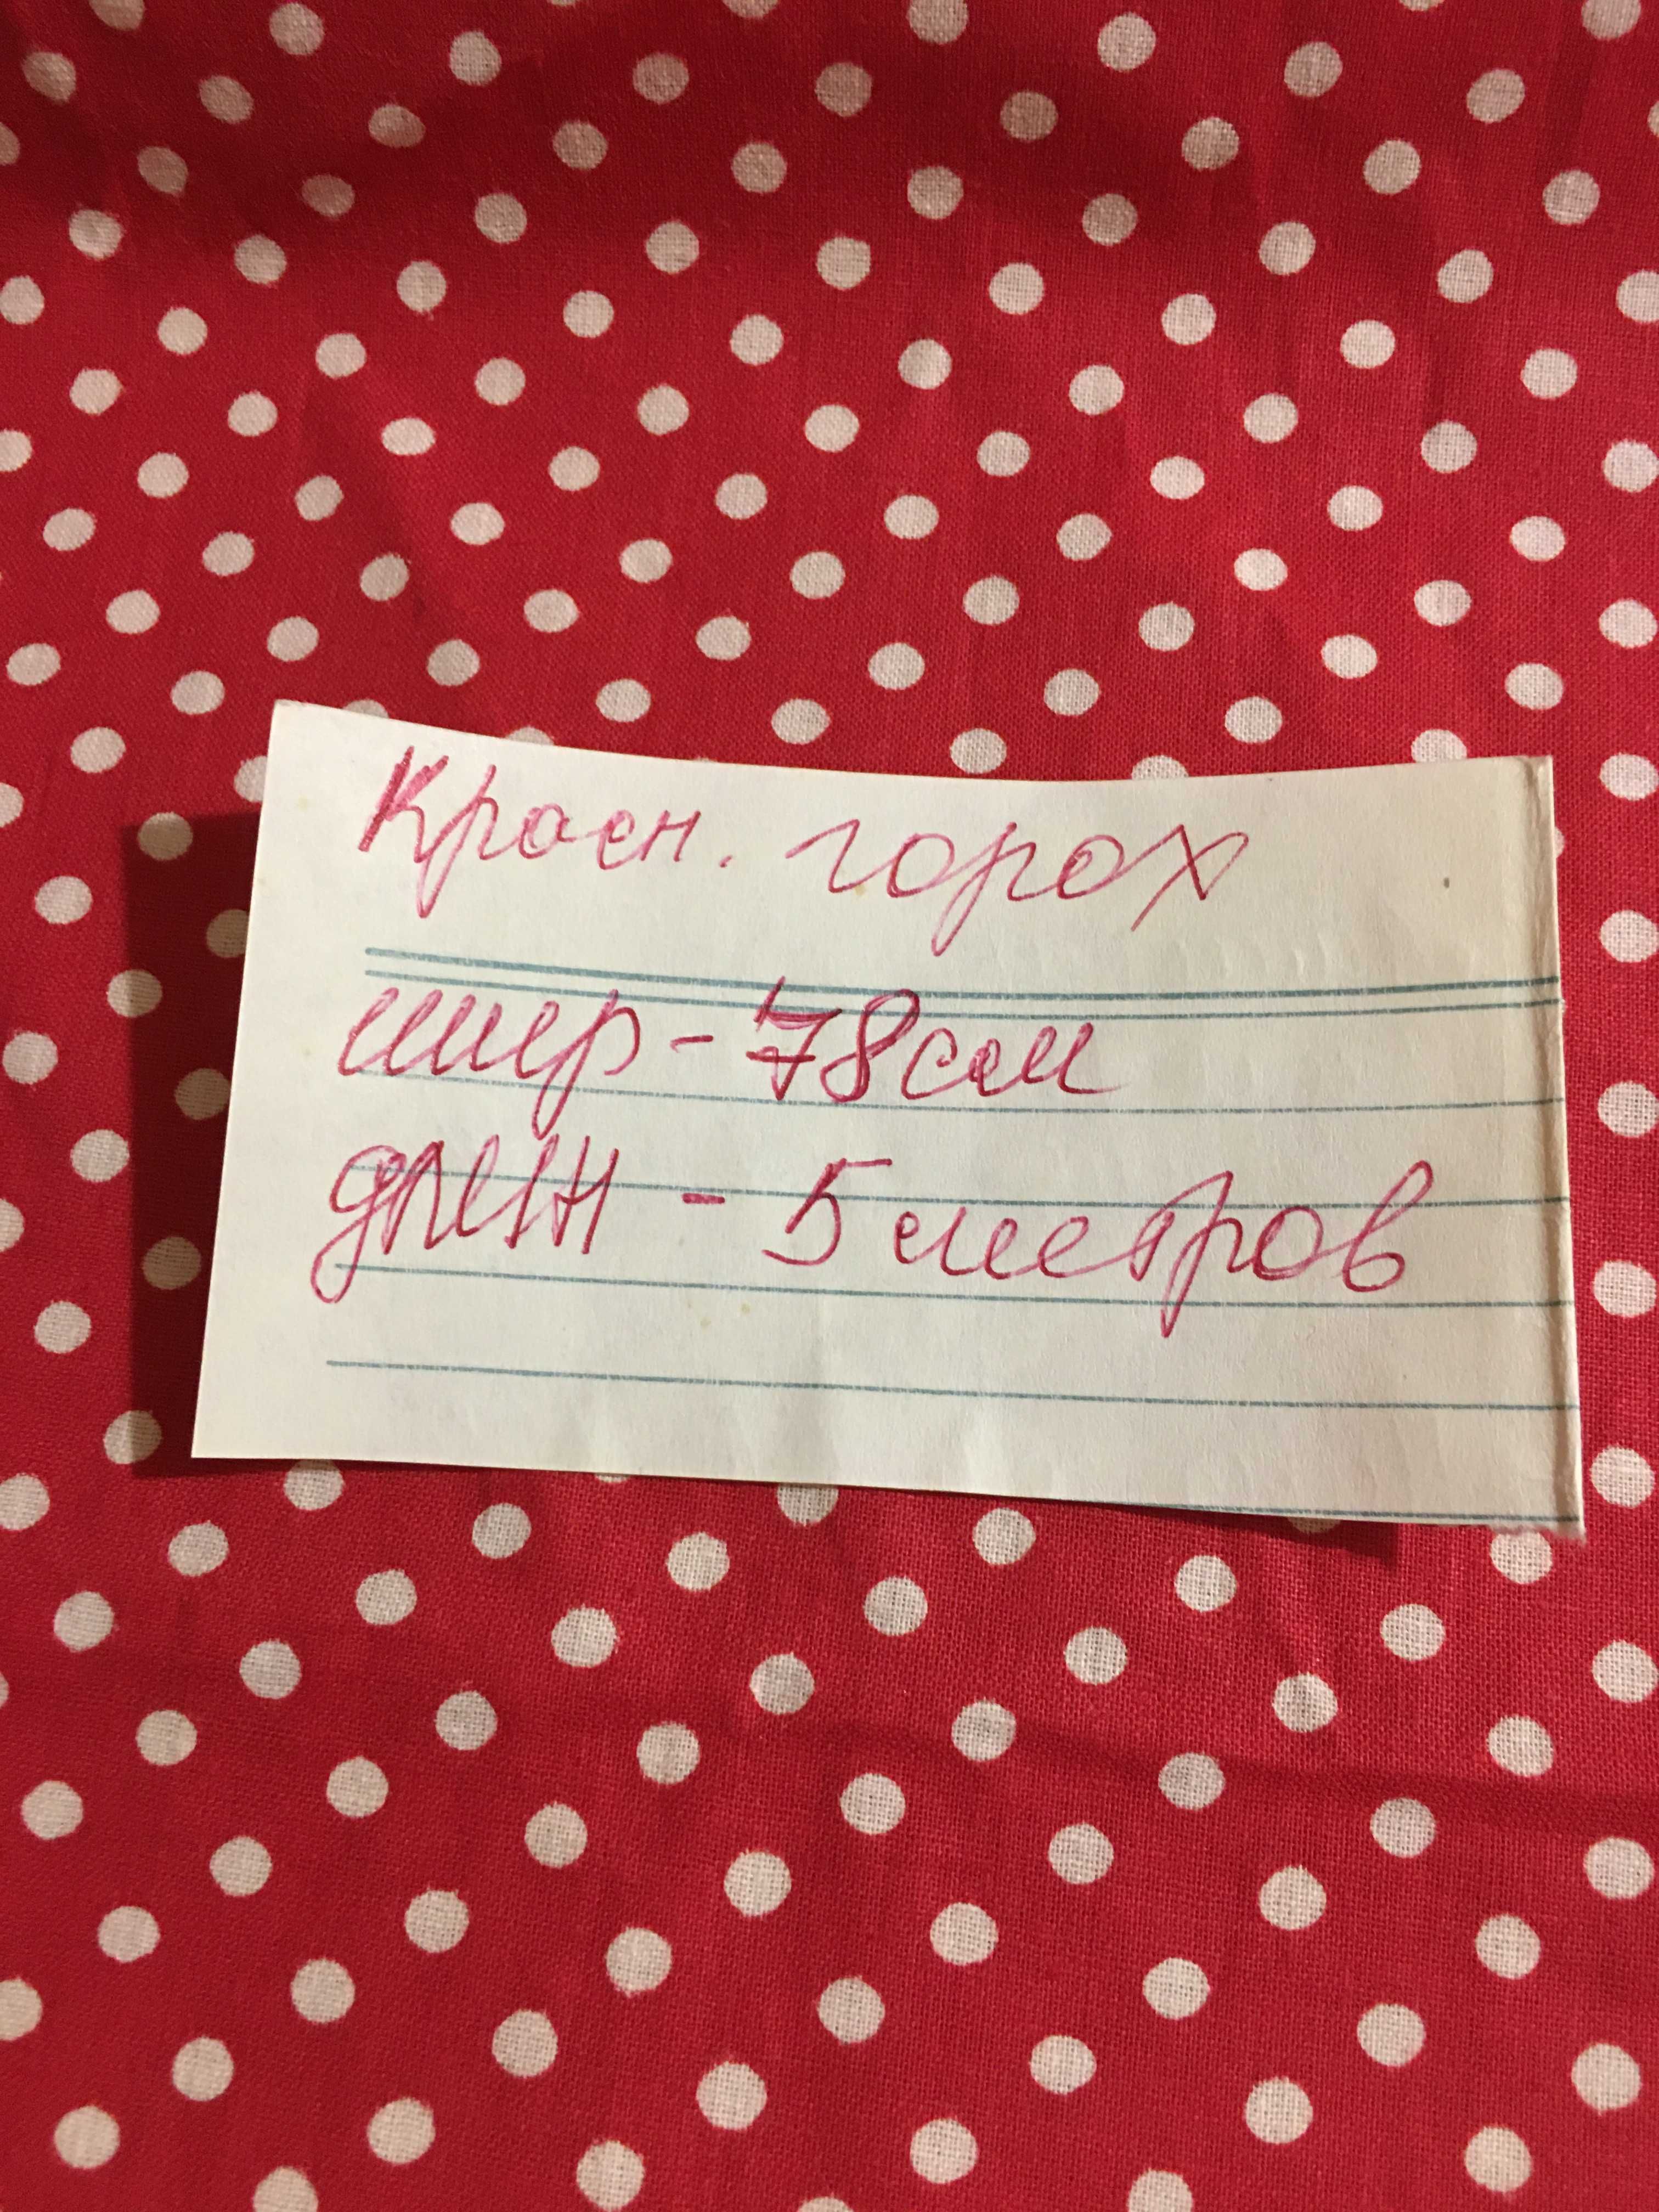 Красн. горох
шир - 78 см
длин - 5 метров